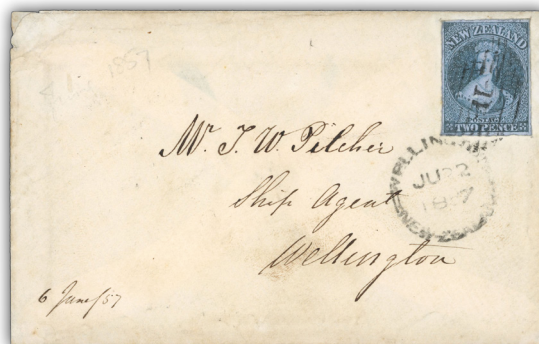 1857
NEW ZEALAND
POSTAGE
TWO PENCE
Mr. J. W. Pilcher
Ship Agent
Wellington
WELLINGTON
JU 22
1857
NEW-ZEALAND
6 June/57